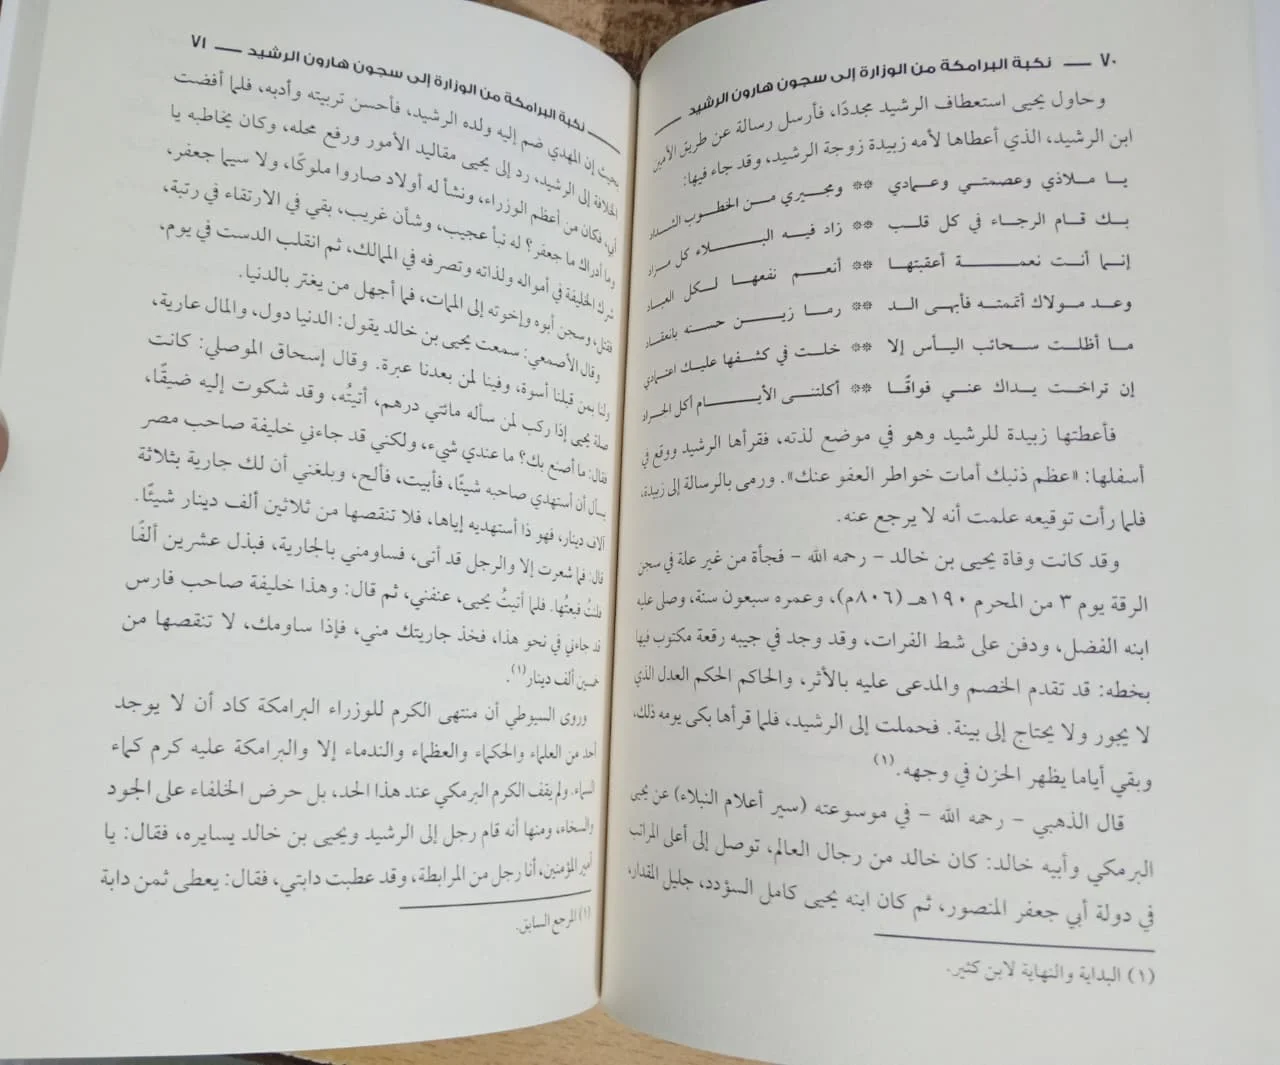 ٧٠ — نكبة البرامكة من الوزارة إلى سجون هارون الرشيد
وحاول يحيى استعطاف الرشيد مجددًا، فأرسل رسالة عن طريق الأمين
ابن الرشيد، الذي أعطاها لأمه زبيدة زوجة الرشيد، وقد جاء فيها:
يا ملاذي وعصمتي وعمادي ** ومجيري من الخطوب الشداد
بك قام الرجاء في كل قلب ** زاد فيه البلاء كل مراد
إنما أنت نعمة أعقبتها ** أنعم نفعها لكل العباد
وعد مولاك أتممته فأبهى الد ** رما زين حسنه بانعقاد
ما أظلت سحائب اليأس إلا ** خلت في كشفها عليك اعتمادي
إن تراخت يداك عني فواقًا ** أكلتنى الأيام أكل الجراد
فأعطتها زبيدة للرشيد وهو في موضع لذته، فقرأها الرشيد ووقع في
أسفلها: «عظم ذنبك أمات خواطر العفو عنك». ورمى بالرسالة إلى زبيدة.
فلما رأت توقيعه علمت أنه لا يرجع عنه.
وقد كانت وفاة يحيى بن خالد – رحمه الله – فجأة من غير علة في سجن
الرقة يوم ٣ من المحرم ١٩٠هـ (٨٠٦م)، وعمره سبعون سنة، وصلى عليه
ابنه الفضل، ودفن على شط الفرات، وقد وجد في جيبه رقعة مكتوب فيها
بخطه: قد تقدم الخصم والمدعى عليه بالأثر، والحاكم الحكم العدل الذي
لا يجور ولا يحتاج إلى بينة. فحملت إلى الرشيد، فلما قرأها بكى يومه ذلك،
وبقي أياما يظهر الحزن في وجهه.(١)
قال الذهبي – رحمه الله – في موسوعته (سير أعلام النبلاء) عن يحيى
البرمكي وأبيه خالد: كان خالد من رجال العالم، توصل إلى أعلى المراتب
في دولة أبي جعفر المنصور، ثم كان ابنه يحيى كامل السؤدد، جليل المقدار،
(١) البداية والنهاية لابن كثير.
نكبة البرامكة من الوزارة إلى سجون هارون الرشيد — ٧١
بحيث إن المهدي ضم إليه ولده الرشيد، فأحسن تربيته وأدبه، فلما أفضت
الخلافة إلى الرشيد، رد إلى يحيى مقاليد الأمور ورفع محله، وكان يخاطبه يا
أبي، فكان من أعظم الوزراء، ونشأ له أولاد صاروا ملوكًا، ولا سيما جعفر،
وما أدراك ما جعفر؟ له نبأ عجيب، وشأن غريب، بقي في الارتقاء في رتبة،
شرك الخليفة في أمواله ولذاته وتصرفه في الممالك، ثم انقلب الدست في يوم،
فقتل، وسجن أبوه وإخوته إلى الممات، فما أجهل من يغتر بالدنيا.
وقال الأصمعي: سمعت يحيى بن خالد يقول: الدنيا دول، والمال عارية،
ولنا بمن قبلنا أسوة، وفينا لمن بعدنا عبرة. وقال إسحاق الموصلي: كانت
صلة يحيى إذا ركب لمن سأله مائتي درهم، أتيتُه، وقد شكوت إليه ضيقًا،
فقال: ما أصنع بك؟ ما عندي شيء، ولكني قد جاءني خليفة صاحب مصر
يسأل أن أستهدي صاحبه شيئًا، فأبيت، فألح، وبلغني أن لك جارية بثلاثة
آلاف دينار، فهو ذا أستهديه إياها، فلا تنقصها من ثلاثين ألف دينار شيئًا.
قال: فما شعرت إلا والرجل قد أتى، فساومني بالجارية، فبذل عشرين ألفًا
فلنتُ فبعتُها. فلما أتيتُ يحيى، عنفني، ثم قال: وهذا خليفة صاحب فارس
قد جاءني في نحو هذا، فخذ جاريتك مني، فإذا ساومك، لا تنقصها من
خمسين ألف دينار(١).
وروى السيوطي أن منتهى الكرم للوزراء البرامكة كاد أن لا يوجد
أحد من العلماء والحكماء والعظماء والندماء إلا والبرامكة عليه كرم كماء
السماء. ولم يقف الكرم البرمكي عند هذا الحد، بل حرض الخلفاء على الجود
والسخاء، ومنها أنه قام رجل إلى الرشيد ويحيى بن خالد يسايره، فقال: يا
أمير المؤمنين، أنا رجل من المرابطة، وقد عطبت دابتي، فقال: يعطى ثمن دابة
(١) المرجع السابق.